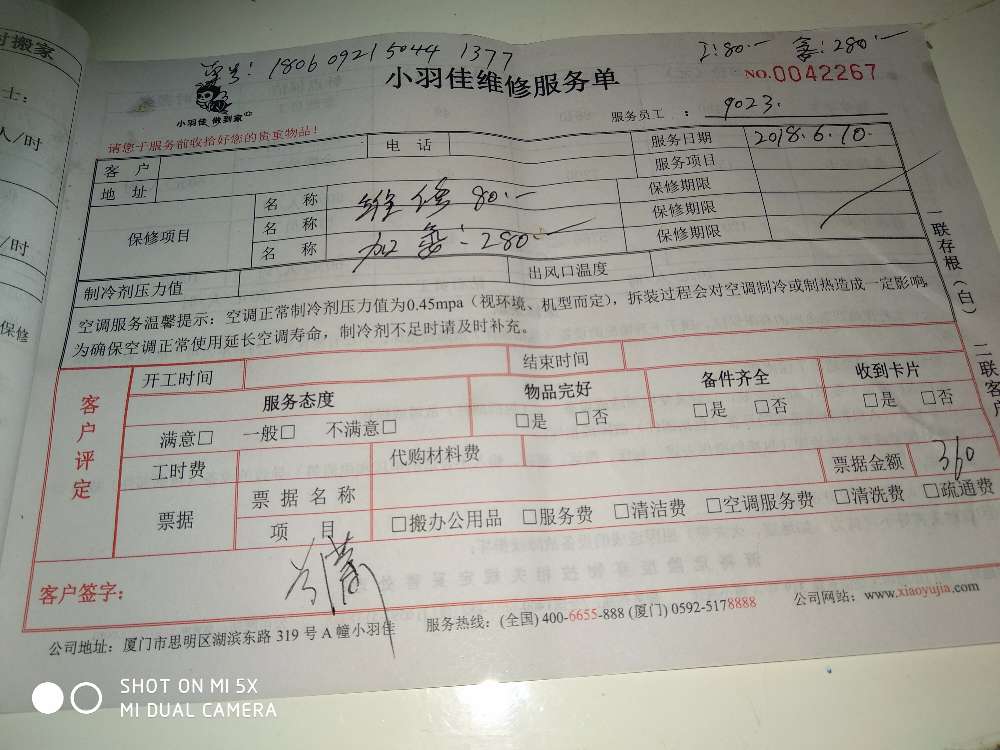 时搬家
士：
人/时
/时
保修
单号：18060921504​4 1377
工：80.— 氟：280.—
小羽佳维修服务单
NO.0042267
小羽佳 做到家
服务员工：9023.
请您于服务前收拾好您的贵重物品！
客户 电话 服务日期 2018.6.10.
地址 服务项目
保修项目 名称 维修 80.— 保修期限
名称 加氟：280.— 保修期限
名称 保修期限
制冷剂压力值 出风口温度
空调服务温馨提示：空调正常制冷剂压力值为0.45mpa（视环境、机型而定），拆装过程会对空调制冷或制热造成一定影响，
为确保空调正常使用延长空调寿命，制冷剂不足时请及时补充。
一联存根（白） 二联客户
客户评定 开工时间 结束时间
服务态度 物品完好 备件齐全 收到卡片
满意□ 一般□ 不满意□ □是 □否 □是 □否 □是 □否
工时费 代购材料费 票据金额 360
票据 票据名称
项目 □搬办公用品 □服务费 □清洁费 □空调服务费 □清洗费 □疏通费
客户签字：
公司地址：厦门市思明区湖滨东路 319 号 A 幢小羽佳 服务热线：(全国) 400-6655-888 (厦门) 0592-5178888 公司网站：www.xiaoyujia.com
SHOT ON MI 5X
MI DUAL CAMERA